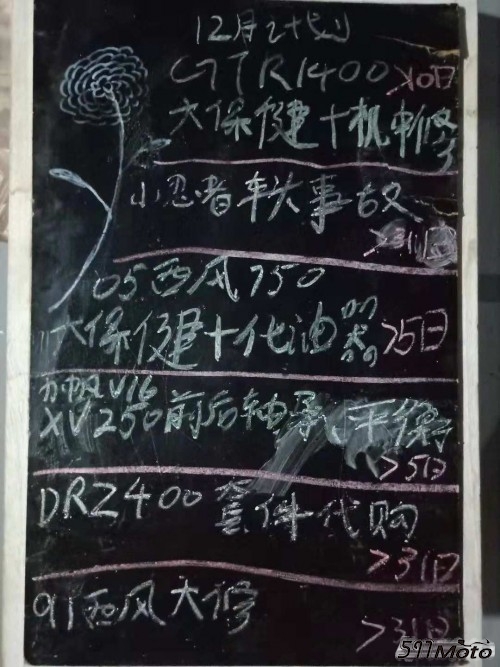 12月计划
GTR1400 >10日
大保健十机车修
小忍者车头事故
>31日
05西风750
大保健十化油器 >25日
力帆V16
XV250前后轴承 平衡
>5日
DRZ400 套件代购
>31日
91西风大修
>31日
511Moto